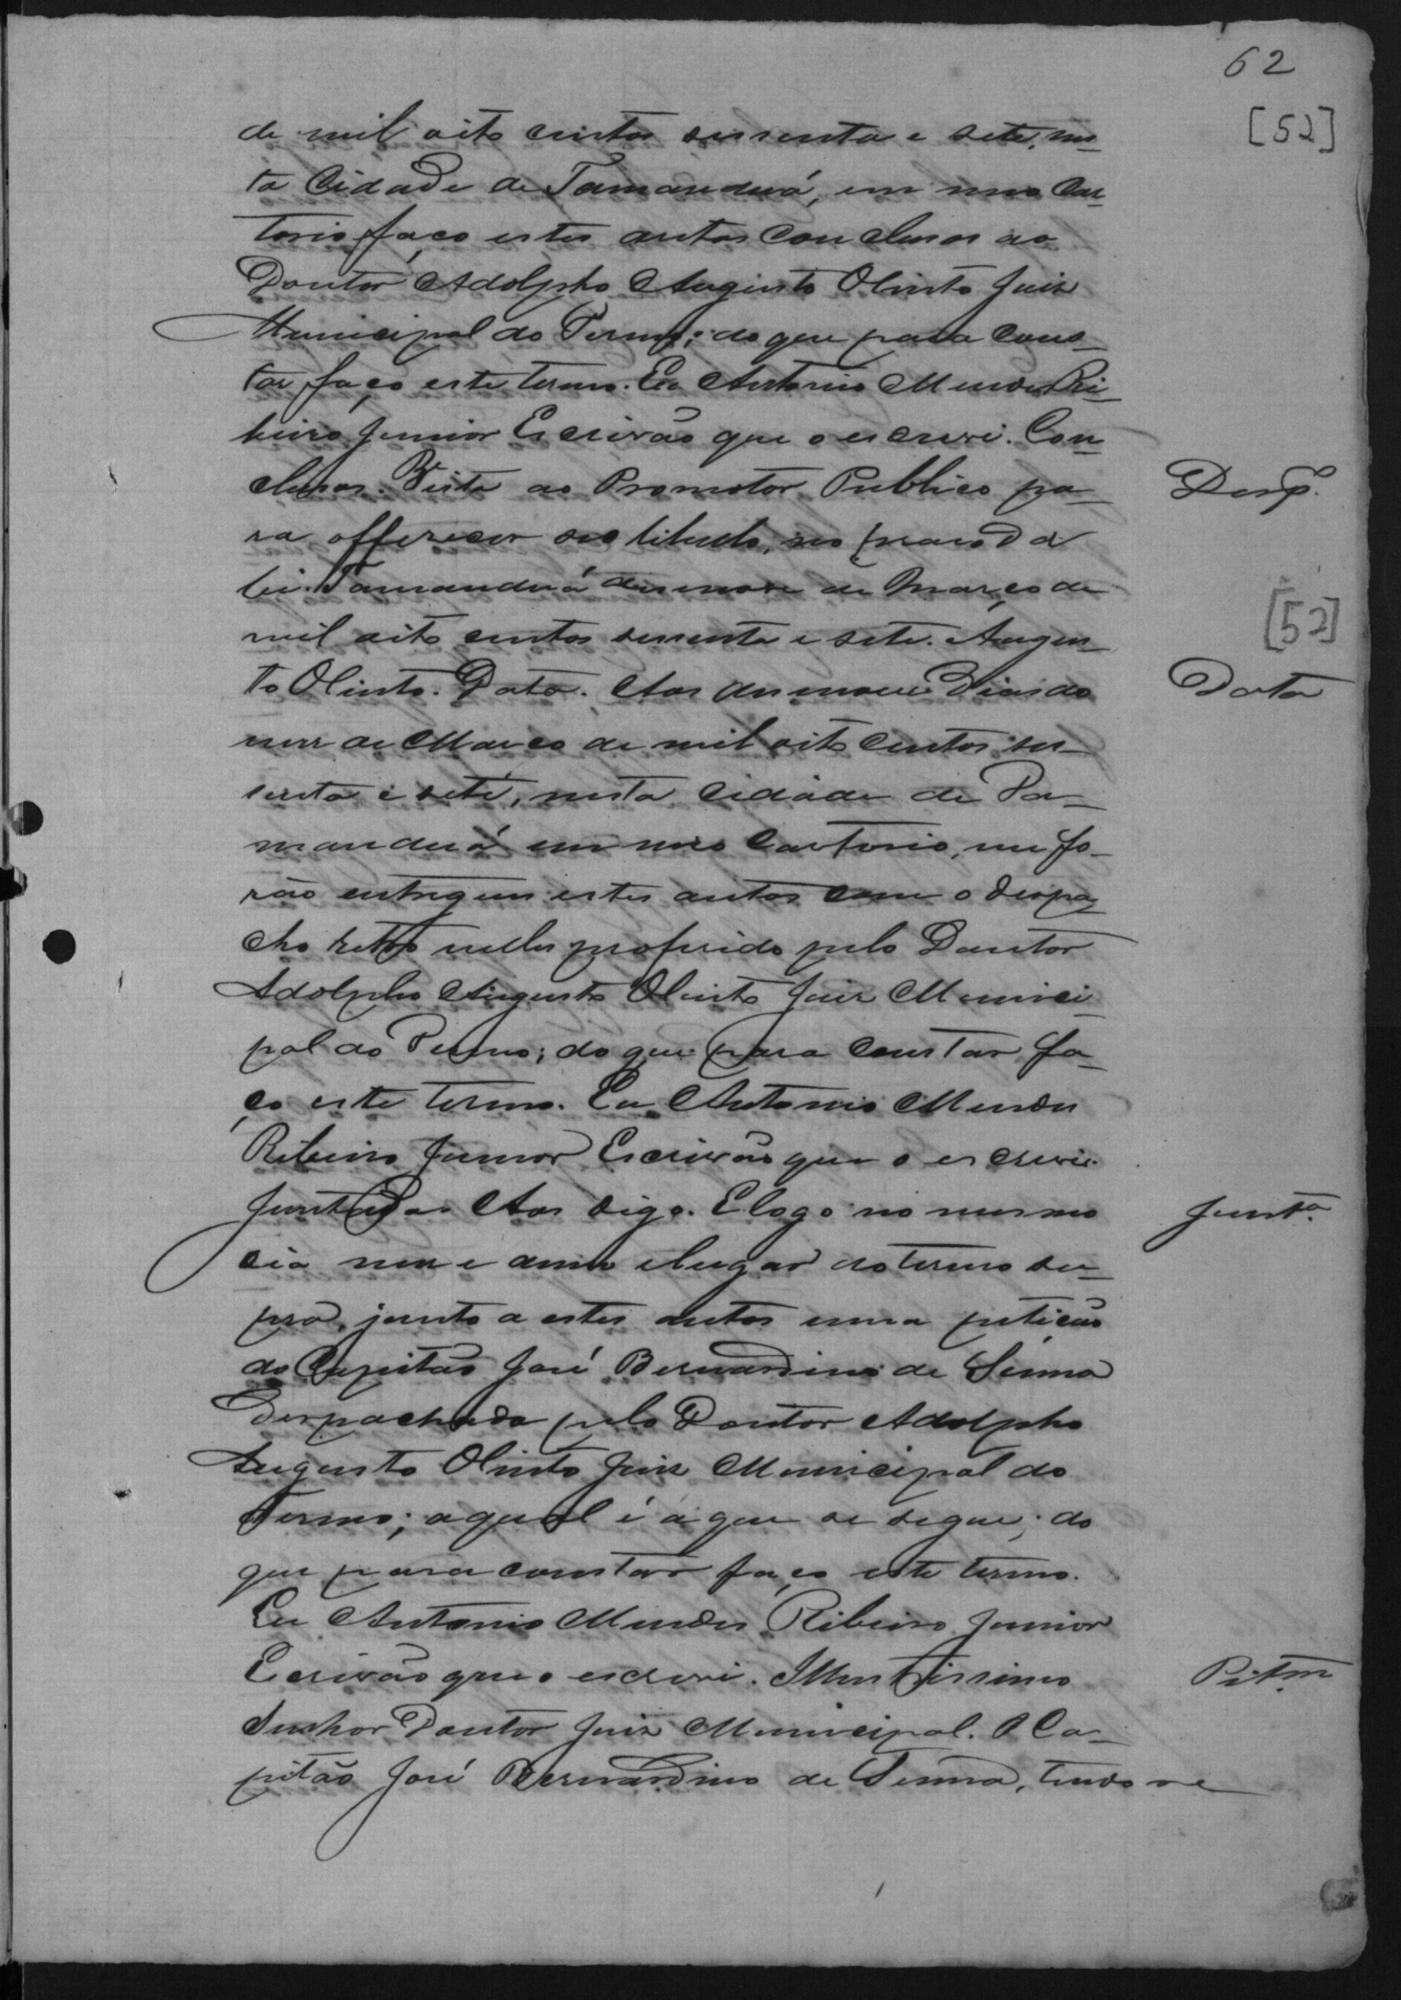 62
[52]
de mil oito centos sessenta e sete, nes-
ta Cidade de Tamanduá, em meo Car-
torio faço estes autos Conclusos ao
Doutor Adolpho Augusto Olinto Juiz
Municipal do Termo; do que para cons-
tar faço este termo. Eu Antonio Mendes Ri-
beiro Junior Escrivão que o escrevi. Con-
clusos. Vista ao Promotor Publico pa-
Desp.º
ra offerecer seo libello, no praso da
lei. Tamanduá desenove de Março de
mil oito centos sessenta e sete. Augus-
[52]
to Olinto. Data. Aos desenove dias do
Data
mez de Março de mil oito centos ses-
senta e sete, nesta cidade de Ta-
manduá em meo Cartorio, me fo-
rão entregues estes autos com o despa-
cho retro nelles proferido pelo Doutor
Adolpho Augusto Olinto Juiz Munici-
pal do Termo; do que para constar fa-
ço este termo. Eu Antonio Mendes
Ribeiro Junior Escrivão que o escrevi.
Juntada. Aos digo. E logo no mesmo
Junt.ª
dia mez e anno e lugar do termo su-
pra, junto a estes autos uma petição
do Capitão José Bernardino de Senna
Despachada pelo Doutor Adolpho
Augusto Olinto Juiz Municipal do
Termo; a qual é a que se segue; do
que para constar faço este termo.
Eu Antonio Mendes Ribeiro Junior
Escrivão que o escrevi. Illustrissimo
Pet.m
Senhor Doutor Juiz Municipal. O Ca-
pitão José Bernardino de Senna, tendo se